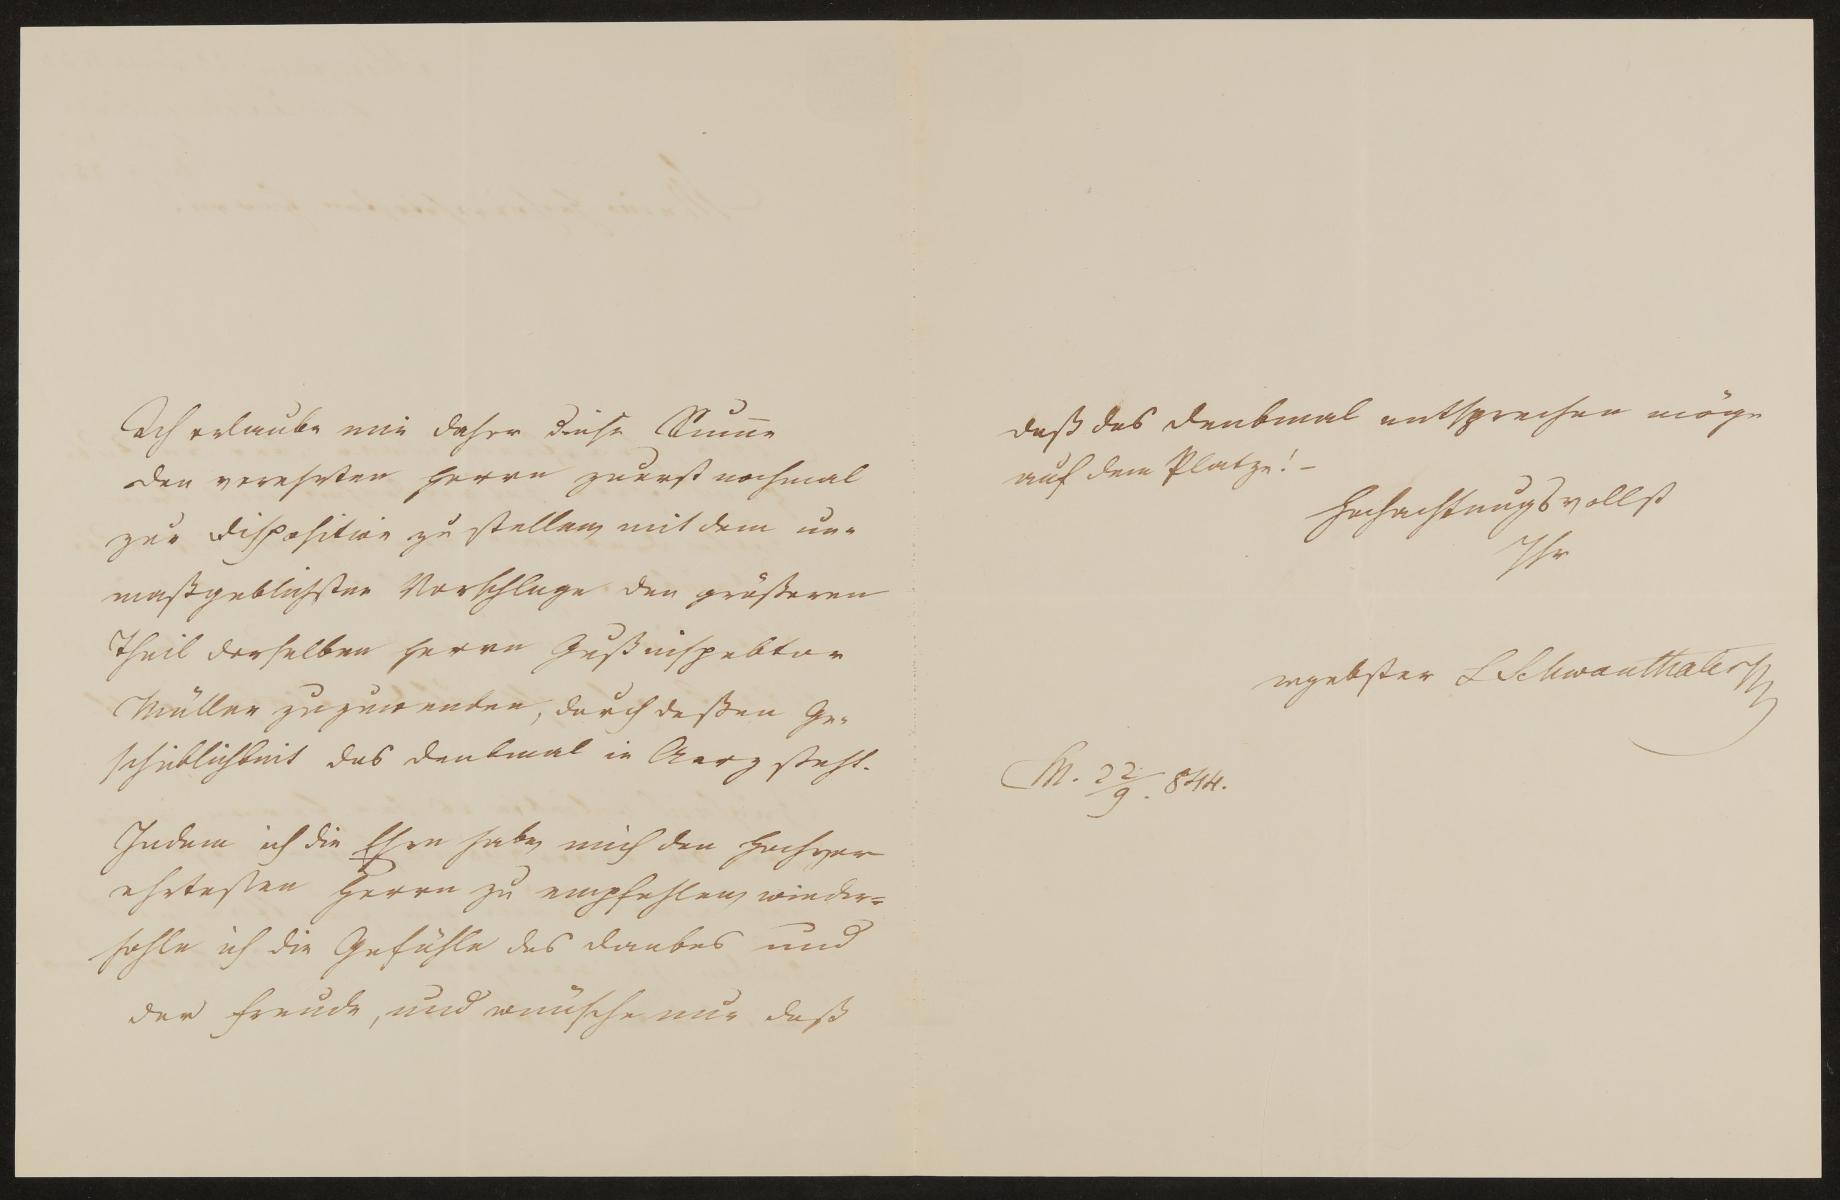 Ich erlaube mir daher diese Summe
den verehrten Herrn zuerst nochmal
zur Disposition zu stellen, mit dem un-
maßgeblichsten Vorschlage den größeren
Theil derselben Herrn Gußinspektor
Müller zuzuwenden, durch deßen Ge-
schicklichkeit das Denkmal in Aerz steht.
Indem ich die Ehre habe, mich den hochver
ehrtesten Herrn zu empfehlen, wieder=
hohle ich die Gefühle des Dankes und
der Freude, und wünsche nur daß
daß das Denkmal entsprechen möge
auf dem Platze! –
Hochachtungsvollst
Ihr
ergebster L Schwanthaler
M. 22/9. 844.